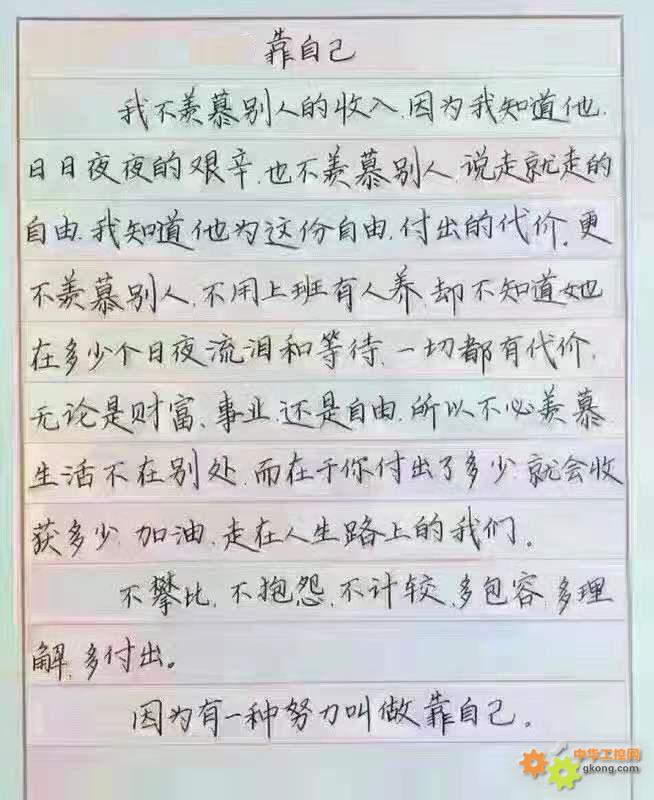 靠自己
我不羡慕别人的收入.因为我知道他.
日日夜夜的艰辛.也不羡慕别人.说走就走的
自由.我知道他为这份自由.付出的代价.更
不羡慕别人.不用上班有人养.却不知道她
在多少个日夜流泪和等待.一切都有代价.
无论是财富、事业.还是自由.所以不必羡慕
生活不在别处.而在于你付出了多少.就会收
获多少.加油.走在人生路上的我们。
不攀比.不抱怨.不计较.多包容.多理
解.多付出。
因为有一种努力叫做靠自己。
中华工控网
gkong.com